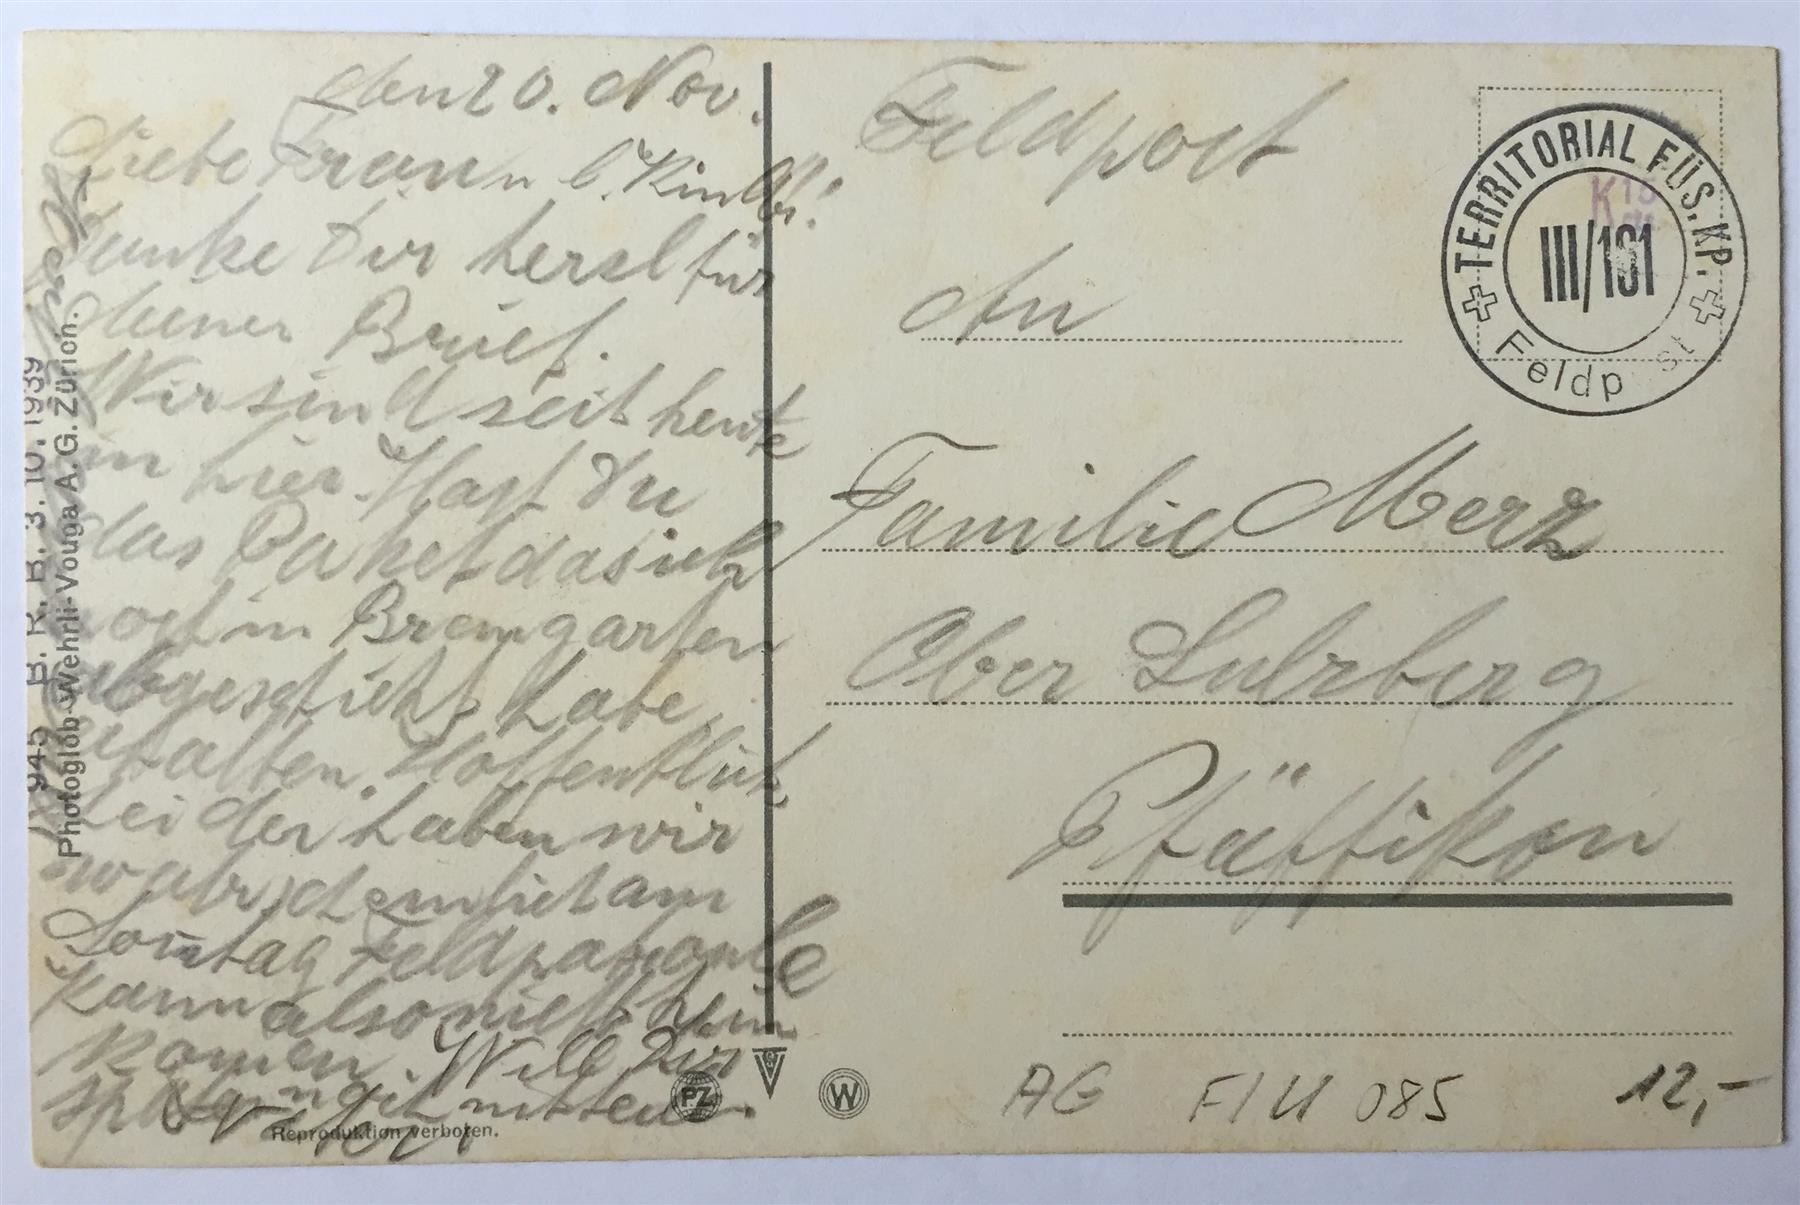 den 20. Nov.
Liebe Frau u l. Kindli!
Danke Dir herzl für
deinen Brief.
Wir sind seit heute
in hier. Hast du
das Paket das ich
noch in Bremgarten
abgeschickt habe
erhalten. Hoffentlich.
Leider haben wir
am
Sonntag Feldp
Kann also nicht heim
komen. Will Dir
später noch mitteilen.
945 B. R. B. 3. 10. 1939
Photoglob-Wehrli-Vouga A. G. Zürich.
Reproduktion verboten.
PZ
W
Feldpost
An
Familie Merz
Ober
Pfäffikon
TERRITORIAL FÜS. KP.
III/191
Feldpost
AG FIU 085 12,-